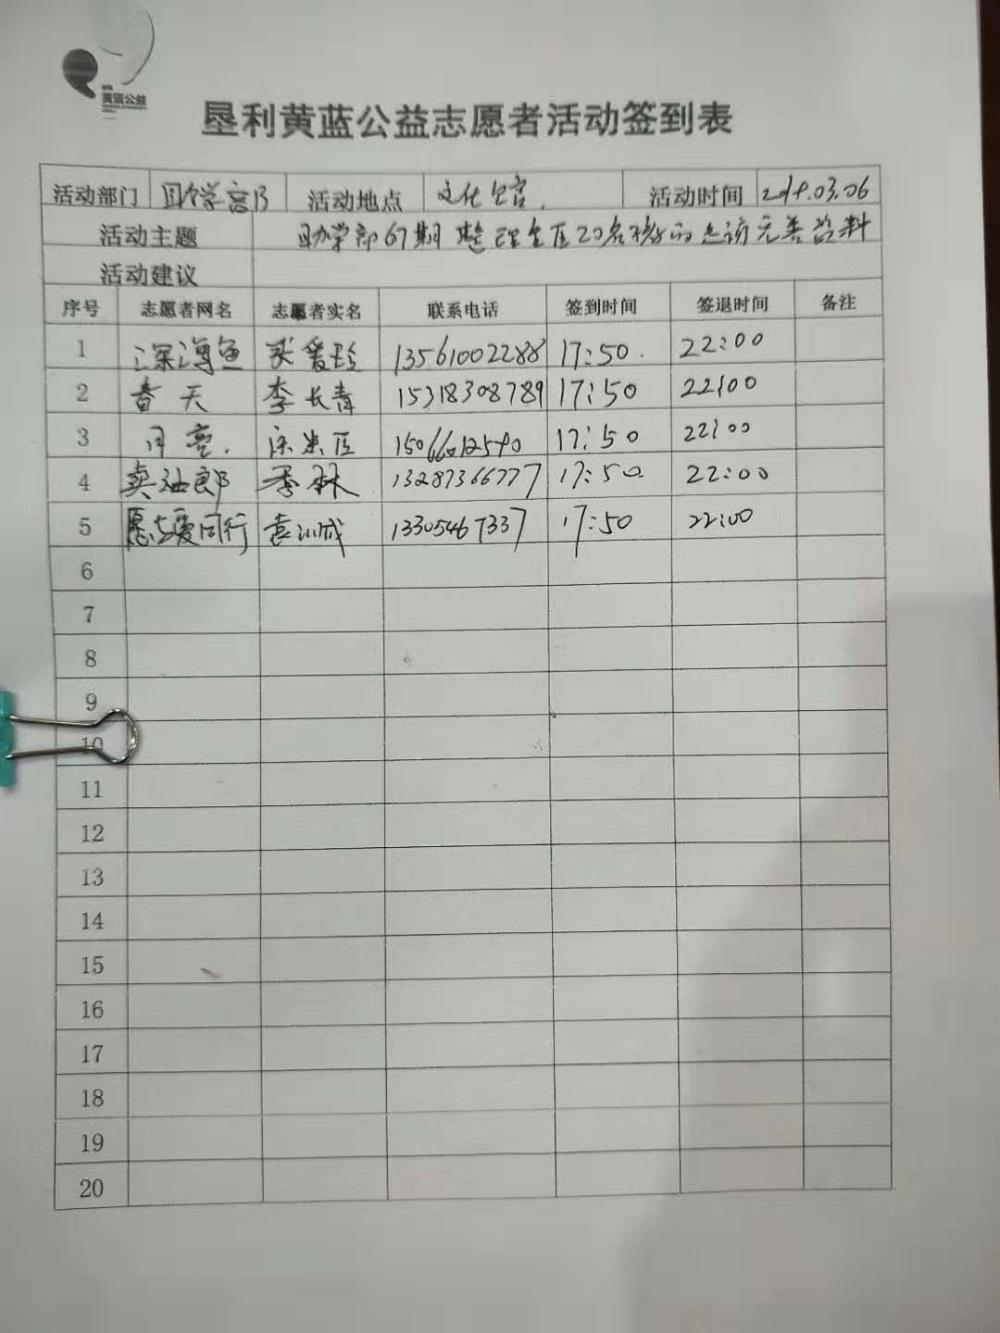 黄蓝公益
垦利黄蓝公益志愿者活动签到表
活动部门 助学部 活动地点 文化 宫. 活动时间 03.06
活动主题 助学部67期 整理 20名 走访完善资料
活动建议
序号 志愿者网名 志愿者实名 联系电话 签到时间 签退时间 备注
1 深海鱼 13561002288 17:50. 22:00
2 春天 李长青 15318308789 17:50 22:00
3 月亮. 17:50 22:00
4 卖油郎 季林 13287366777 17:50 22:00
5 愿与爱同行 袁训成 13305467337 17:50 22:00
6
7
8
9
10
11
12
13
14
15
16
17
18
19
20